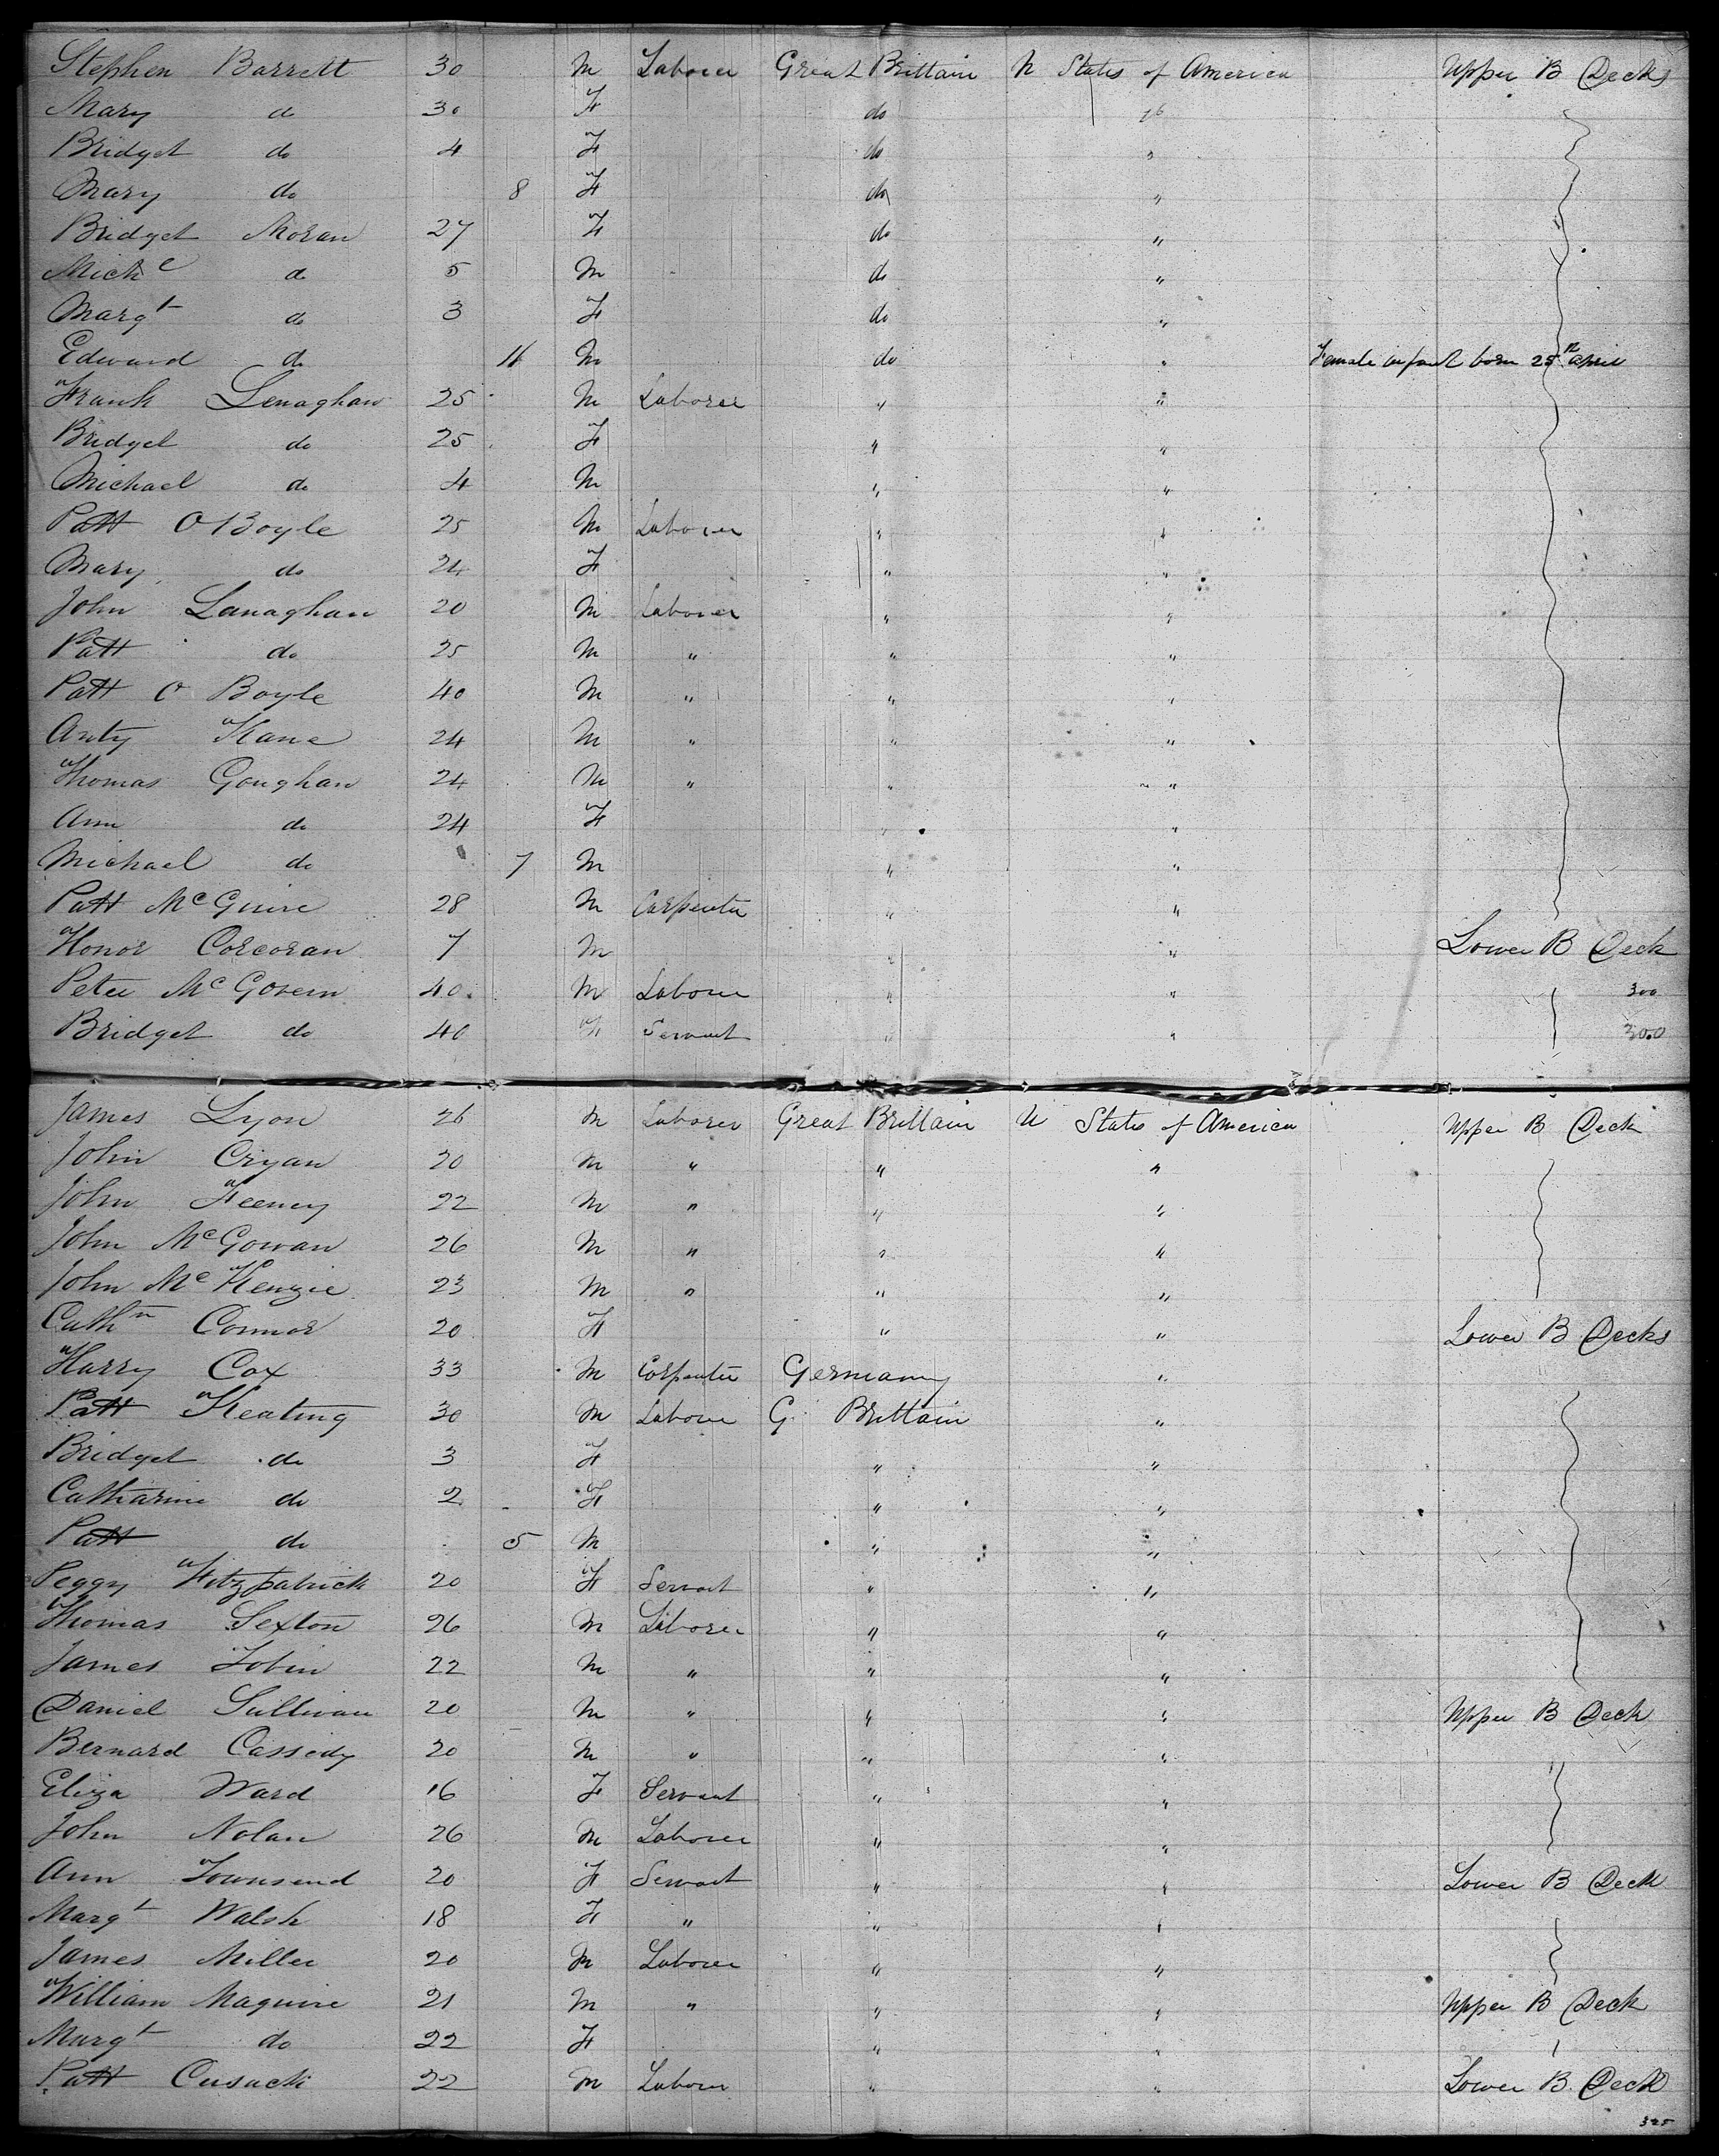 Stephen Barrett 30 M Laborer Great Brittain U States of America Upper B Decks
Mary do 30 F do do
Bridget do 4 F do "
Mary do 8 F do "
Bridget Moran 27 F do "
Mich l do 5 M do "
Margt do 3 F do "
Edward do 11 M do " Female infant born 25th April
Frank Lenaghan 25 M Laborer " "
Bridget do 25 F " "
Michael do 4 M " "
Patt O Boyle 25 M Laborer " "
Mary do 24 F " "
John Lanaghan 20 M Laborer " "
Patt do 25 M " " "
Patt O Boyle 40 M " " "
Anty Kane 24 M " " "
Thomas Goughan 24 M " " "
Ann do 24 F " "
Michael do 7 M " "
Patt McGuire 28 M Carpenter " "
Honor Corcoran 7 M " " Lower B Deck
Peter McGovern 40 M Laborer " " 300
Bridget do 40 F Servant " " 300
James Lyon 26 M Laborer Great Brittain U States of America Upper B Deck
John Cryan 20 M " " "
John Feeney 22 M " " "
John McGowan 26 M " " "
John McKenzie 23 M " " "
Cathn Connor 20 F " " Lower B Decks
Harry Cox 33 M Carpenter Germany "
Patt Keating 30 M Laborer G Brittain "
Bridget do 3 F " "
Catharine do 2 F " "
Patt do 5 M " "
Peggy Fitzpatrick 20 F Servant " "
Thomas Sexton 26 M Laborer " "
James Tobin 22 M " " "
Daniel Sullivan 20 M " " " Upper B Deck
Bernard Cassedy 20 M " " "
Eliza Ward 16 F Servant " "
John Nolan 26 M Laborer " "
Ann Townsend 20 F Servant " " Lower B Deck
Margt Walsh 18 F " " "
James Miller 20 M Laborer " "
William Maguire 21 M " " " Upper B Deck
Margt do 22 F " "
Patt Cusack 22 M Laborer " " Lower B Deck
325